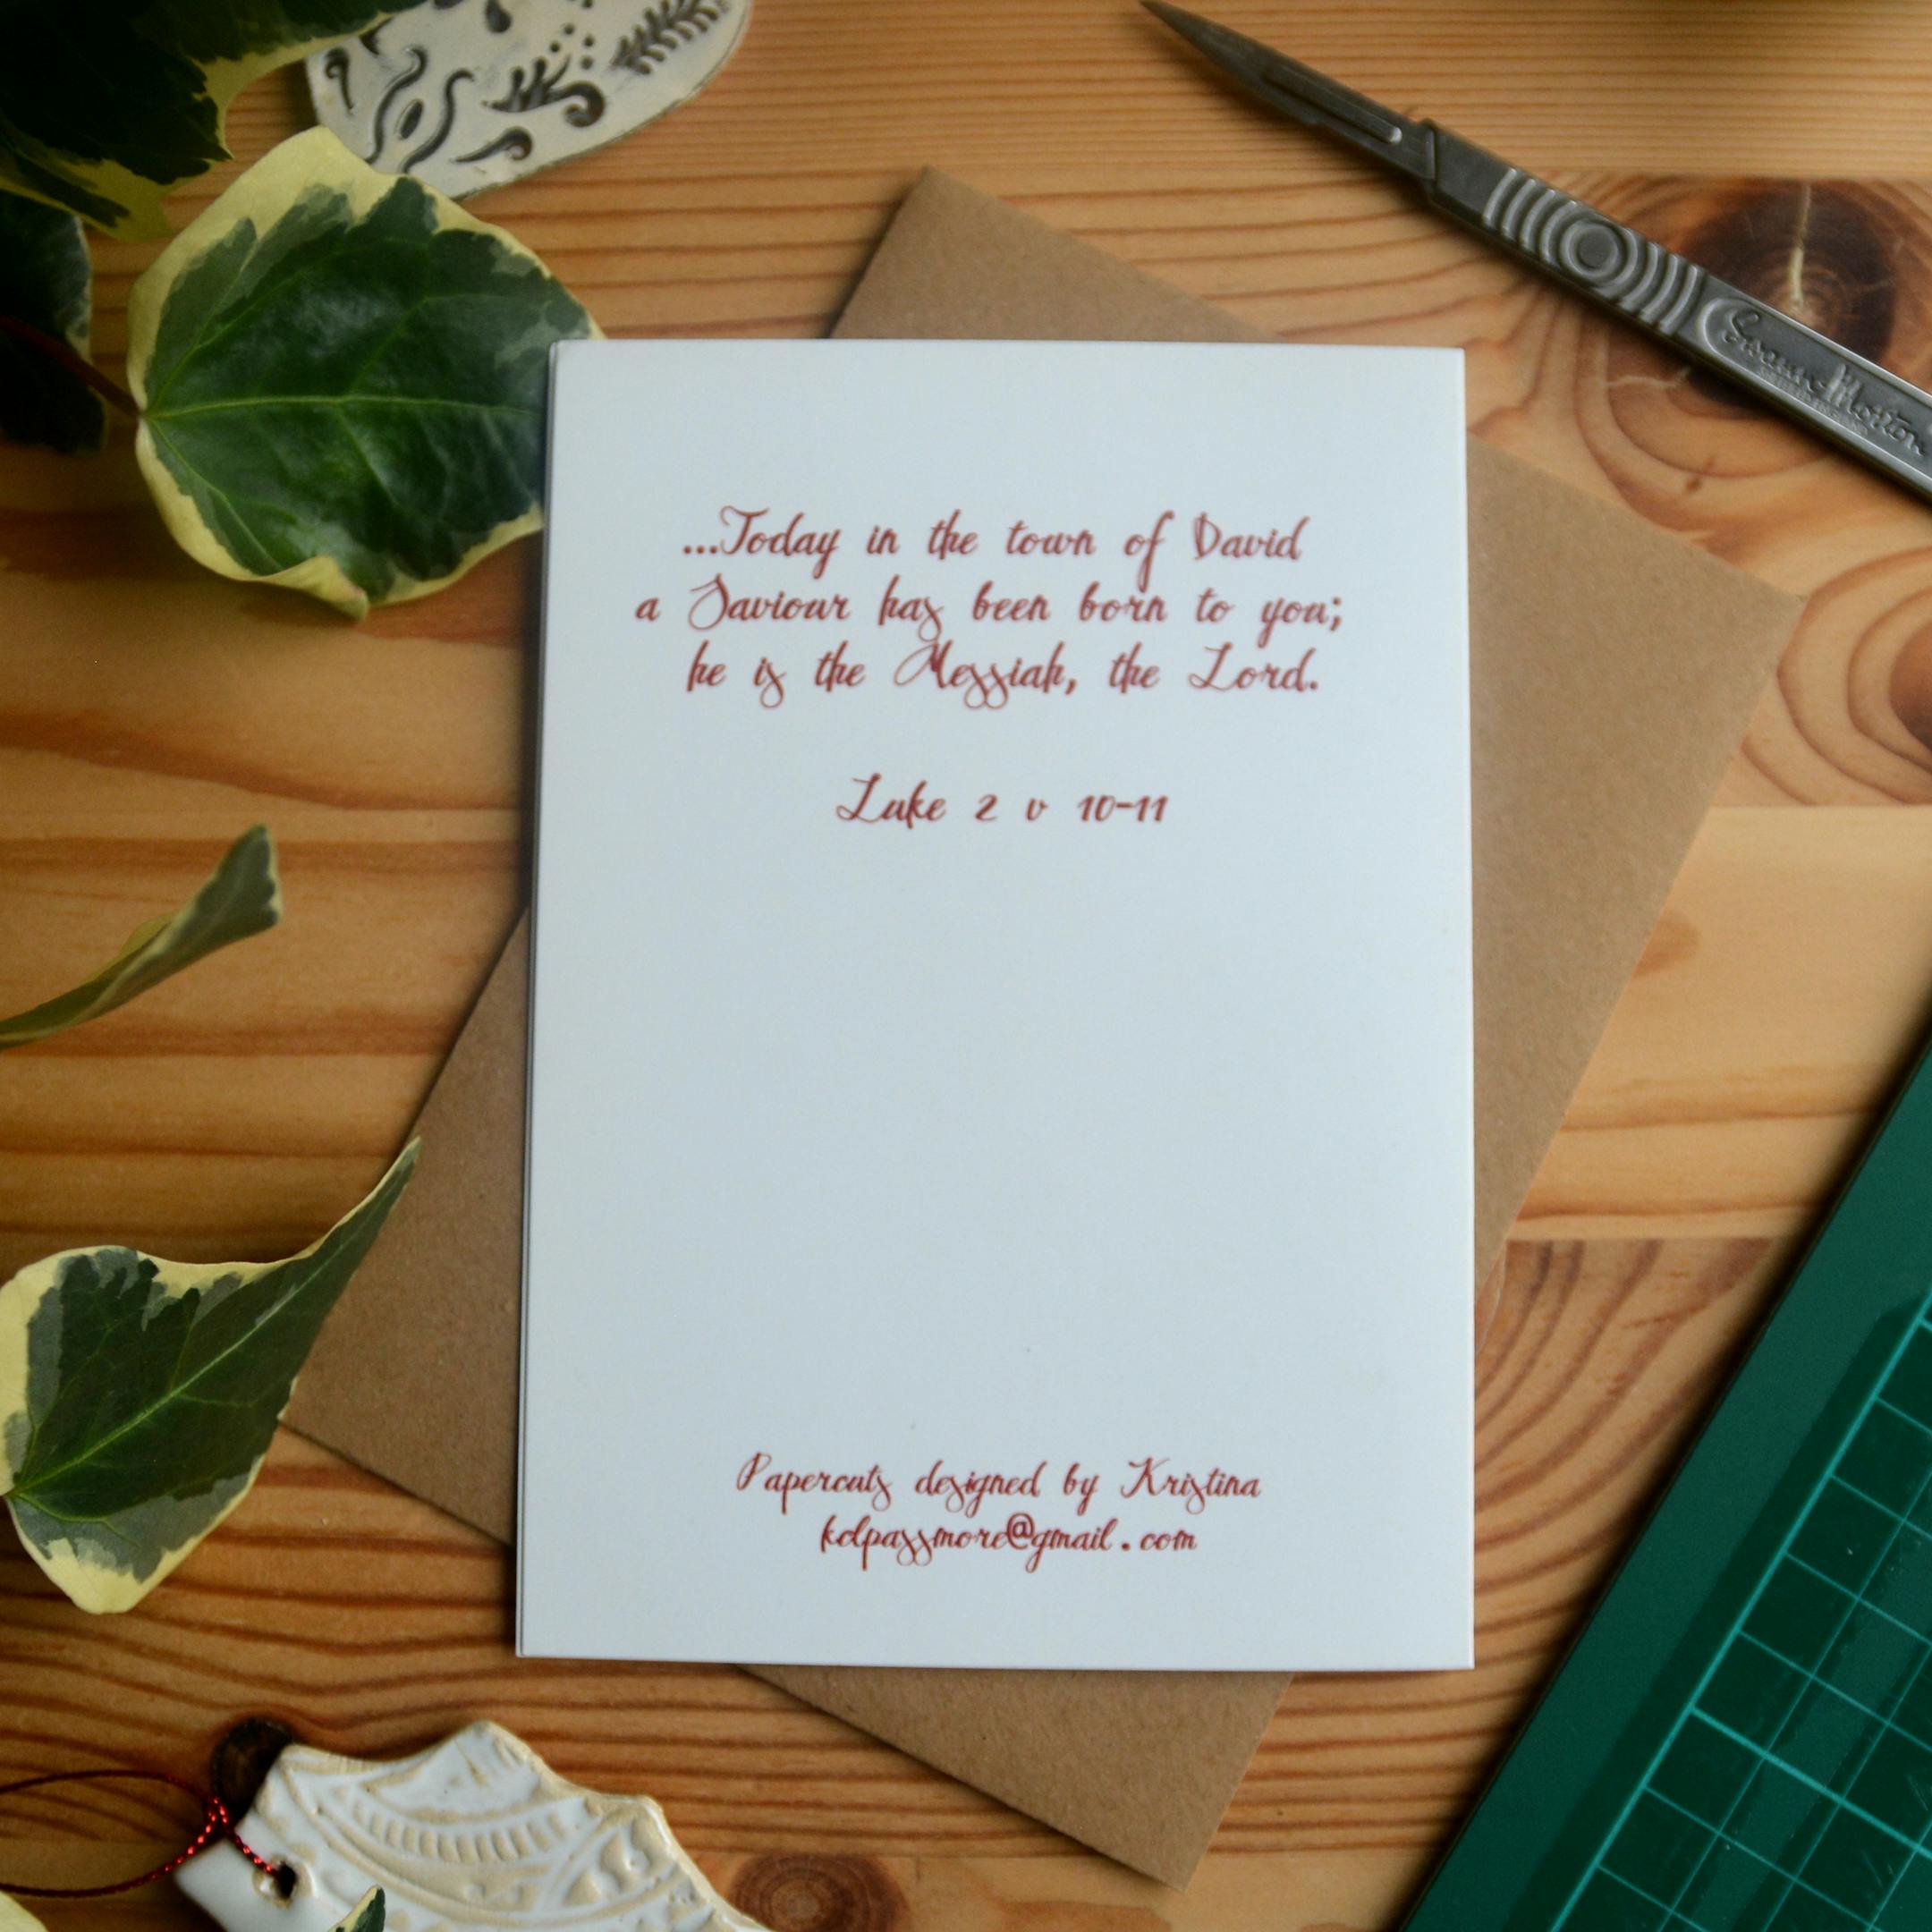 Swann-Morton
...Today in the town of David
a Saviour has been born to you;
he is the Messiah, the Lord.
Luke 2 v 10-11
Papercuts designed by Kristina
kdpassmore@gmail.com